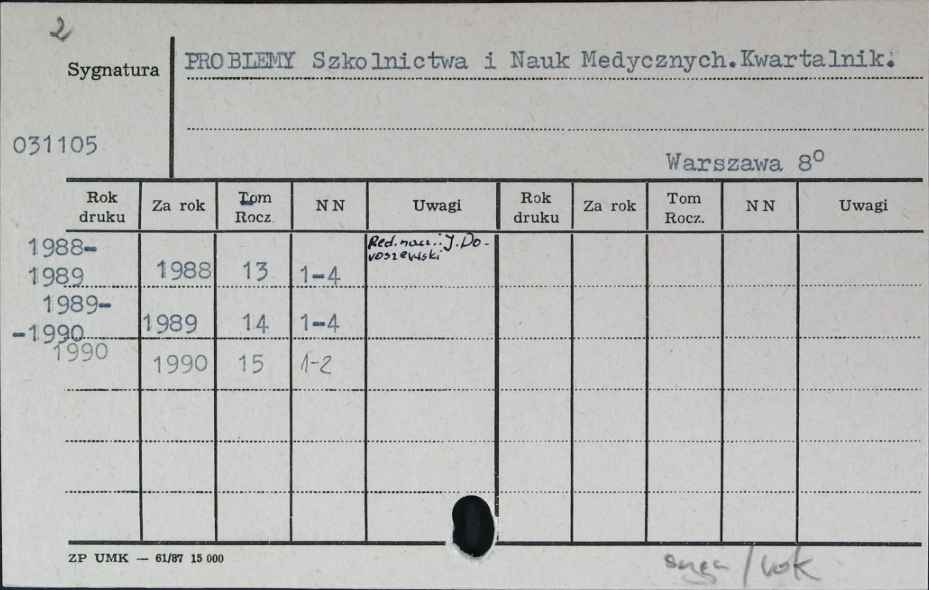 2
Sygnatura
PROBLEMY Szkolnictwa i Nauk Medycznych.Kwartalnik.
031105
Warszawa 8°
Rok druku Za rok Tom Rocz. NN Uwagi Rok druku Za rok Tom Rocz. NN Uwagi
1988-1989 1988 13 1-4 Red. nacz.: J. Doroszewski
1989--1990 1989 14 1-4
1990 1990 15 1-2
ZP UMK — 61/87 15 000